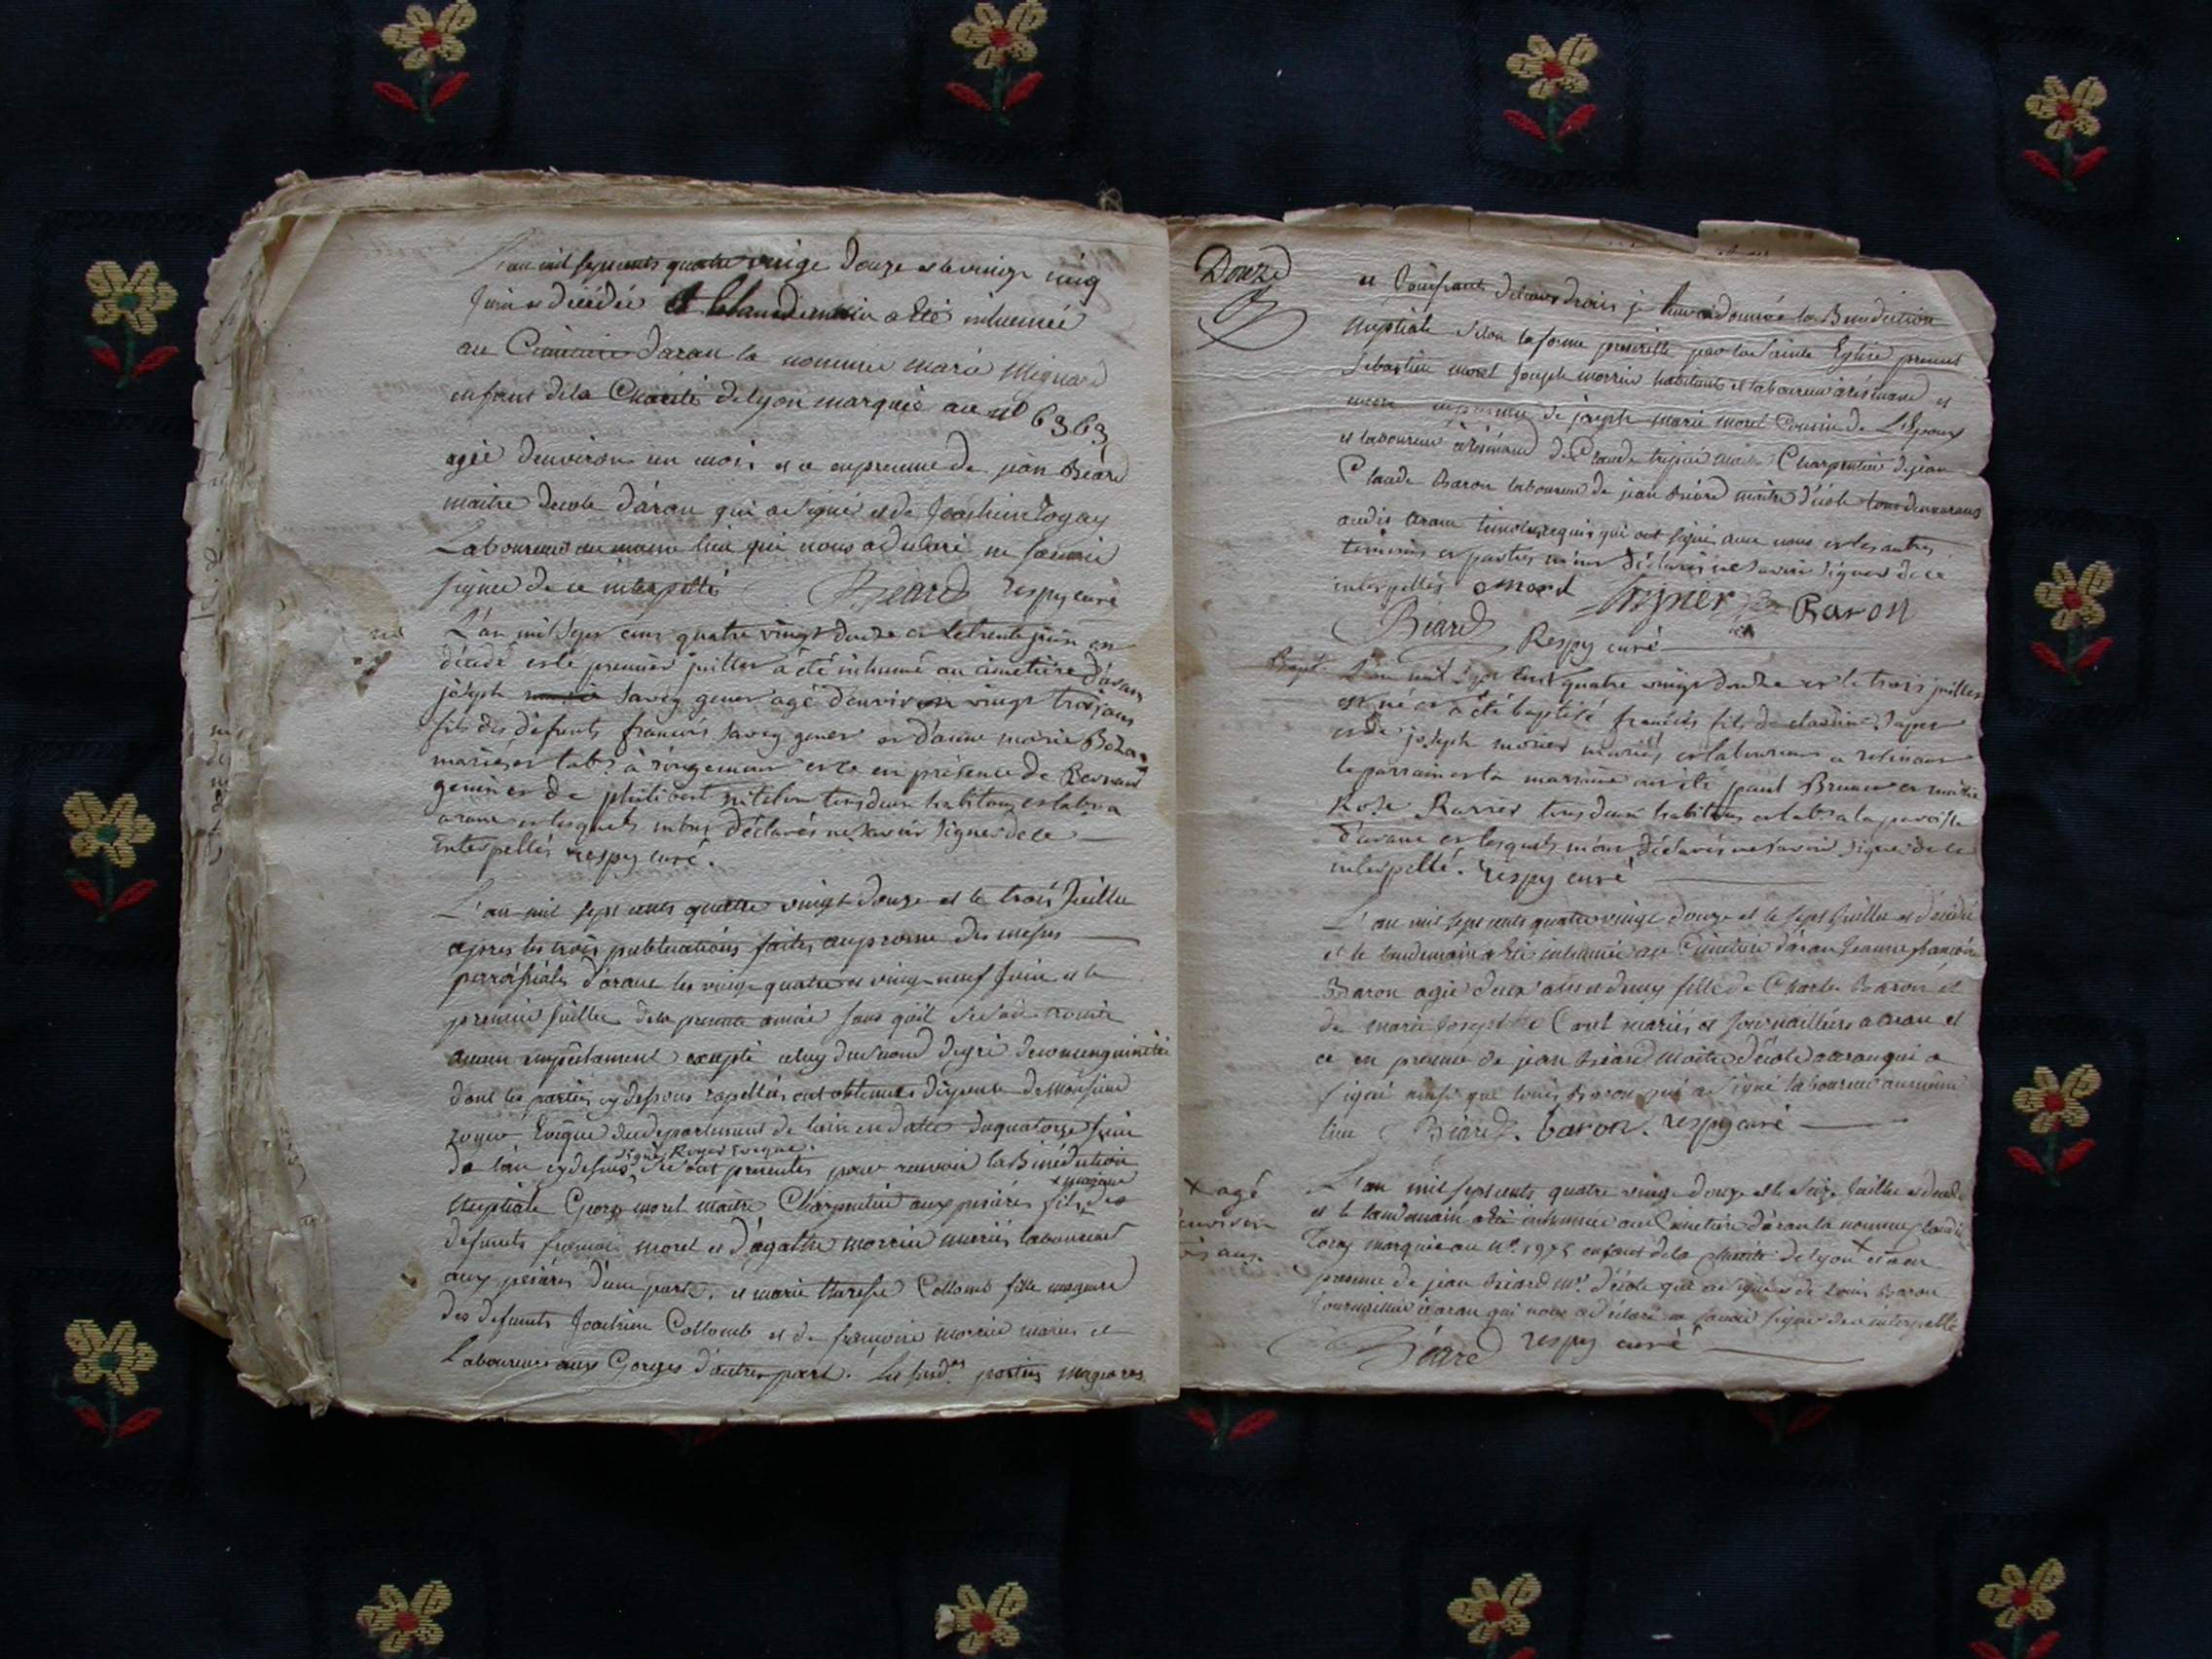 L'an mil sept cents quatre vingt douze et le vingt cinq
Juin est décédée et le landemain a été inhumée
au Cimitiere d'aran la nommée marie Mignard
enfant de la Charité de lyon marquée au n° 6363
agée d'environ un mois et ce en presence de jean Béard
maitre d'ecole d'aran qui a signé et de Joachim
Laboureur au meme lieu qui nous a declaré ne savoir
signer de ce interpellé Béard respy curé
L'an mil sept cens quatre vingt douze et le trente juin est
décédé et le premier juillet a été inhumé au cimetiere d'aran
joseph savey gener agé d'environ vingt trois ans
fils des défunts francois savey gener et d'anne marie
mariés et lab. à et ce en présence de Bernard
et de philibert tous deux habitans et lab. a
arane et lesquels m'ont déclarés ne savoir signer de ce
interpellés respy curé.
L'an mil sept cents quatre vingt douze et le trois Juillet
apres les trois publications faites au prosne des messes
parroissiales d'arane les vingt quatre et vingt neuf Juin et le
premier Juillet de la presente année sans qu'il se soit trouvé
aucun empêchement excepté celuy du second degré de consenguinitée
dont les parties cy dessous rapellées ont obtenues dispense de monsieur
royer Evêque du departement de lain en datte du quatorze Juin
signé Royer Eveque.
de l'an cy dessus, se sont presentés pour recevoir la Bénédiction
x majeur
Nuptiale George morel maitre Charpentier aux pesières fils des
defunts francois morel et d'agathe morrier mariés laboureurs
aux pesières d'une part, et marie therese Collomb fille majeure
des defunts Joachim Collomb et de françoise morrier mariés et
Laboureurs aux Gorges d'autre part. Les susd. parties majeures
Douze
et Jouissants de leurs droits je leur ai donnée la Benediction
Nuptiale selon la forme prescritte par la Sainte Eglise presents
Sebastien morel Joseph morrier habitants et laboureurs à résinand et
en presence de joseph marie morel Cousin de L'Epoux
et laboureur à résinand de Claude maitre Charpentier de jean
Claude Baron laboureur de jean Béard maitre d'école tous demeurans
audit Arane temoins requis qui ont signé avec nous et les autres
temoins et parties m'ont déclarés ne savoir signer de ce
interpellés Morel Baron
Béard Respy curé
Bapt. L'an mil sept cens quatre vingt douze et le trois juillet
est né et a été baptisé francois fils de
et de joseph morier mariés et laboureurs a resinand
le parrain et la marraine ont été paul et
Rose tous deux habitans et lab. a la paroisse
d'arane et lesquels m'ont déclarés ne savoir signer de ce
interpellé. respy curé
L'an mil sept cents quatre vingt douze et le sept Juillet est décédée
et le landemain a été inhumée au Cimitiere d'aran Jeanne françoise
Baron agée deux ans et demy fille de Charles Baron et
de marie Josephte Carel mariés et Journailliers a aran et
ce en presence de jean Béard maitre d'école a aran qui a
signé ainsi que louis Baron qui a signé laboureur au meme
lieu Béard. baron. respy curé
x agé
environ
ans
L'an mil sept cents quatre vingt douze et le seize Juillet est décédée
et le landemain a été inhumée au Cimitiere d'aran la nommée
marquée au N° 1975 enfant de la Charité de lyon x et ce en
presence de jean Béard m. d'école qui a signé et de Louis Baron
Journaillier à aran qui nous a déclaré ne savoir signer de ce interpellé
Béard respy curé